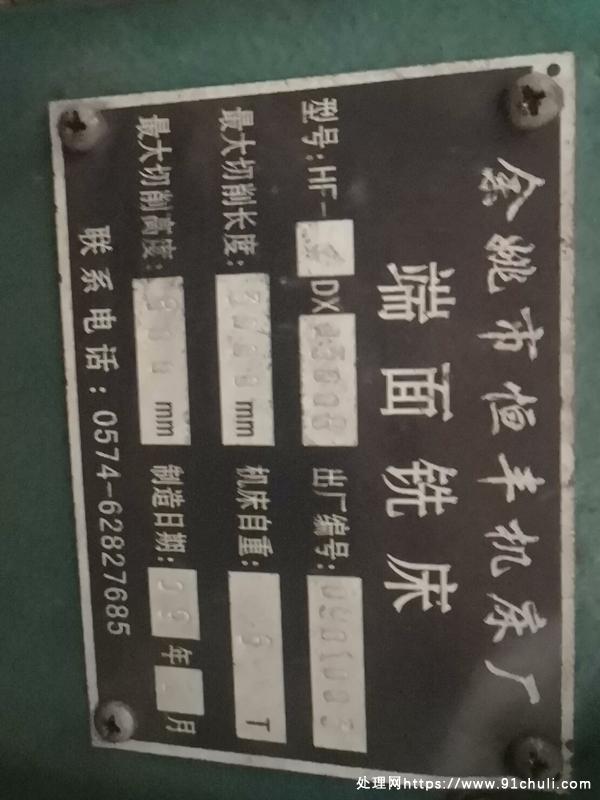 余姚市恒丰机床厂
端面铣床
型号:HF- DX 3000 出厂编号:0901003
最大切削长度:3000mm 机床自重: 6 T
最大切削高度: 00mm 制造日期:09年 月
联系电话:0574-62827685
处理网https://www.91chuli.com